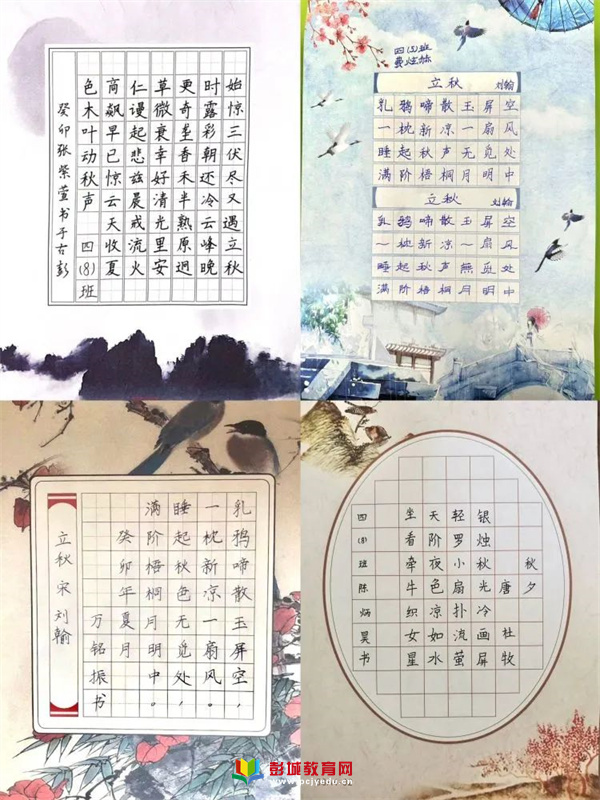 始惊三伏尽又遇立秋
时露彩朝还冷云峰晚
更奇垄香禾半熟原迥
草微衰幸好清光里安
仁谩起悲兹晨戒流火
商飙早已惊云天收夏
色木叶动秋声 四(8)班
癸卯张紫萱书于古彭
四(5)班
立秋 刘翰
乳鸦啼散玉屏空
一枕新凉一扇风
睡起秋声无觅处
满阶梧桐月明中
立秋 刘翰
乳鸦啼散玉屏空
一枕新凉一扇风
睡起秋声無觅处
满阶梧桐月明中
乳鸦啼散玉屏空，
一枕新凉一扇风。
睡起秋色无觅处，
满阶梧桐月明中。
癸卯年夏月
万铭振书
立秋 宋 刘翰
秋夕
唐 杜牧
银烛秋光冷画屏
轻罗小扇扑流萤
天阶夜色凉如水
坐看牵牛织女星
四(8)班陈炳昊书
彭城教育网
www.pcjyedu.cn